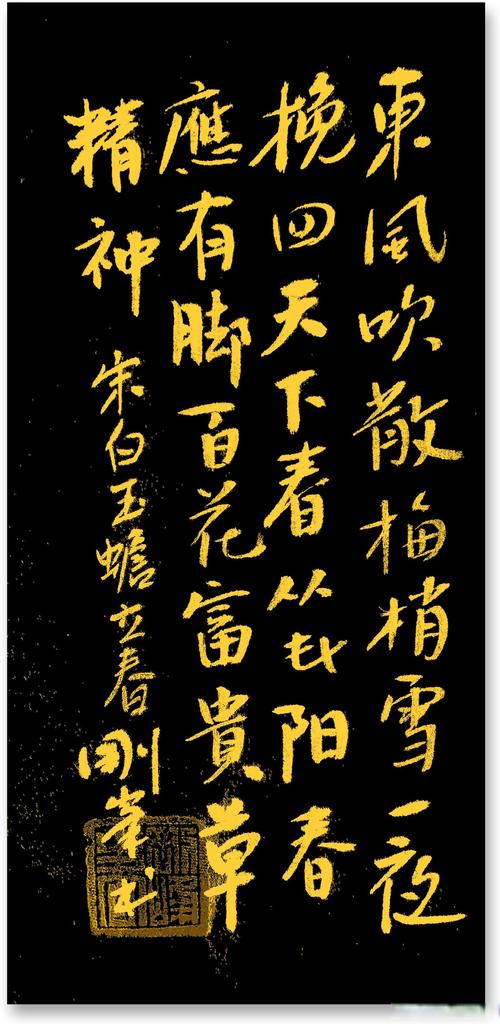 東風吹散梅梢雪一夜
挽回天下春从此阳春
應有脚百花富貴草
精神 宋白玉蟾立春 剛峯书